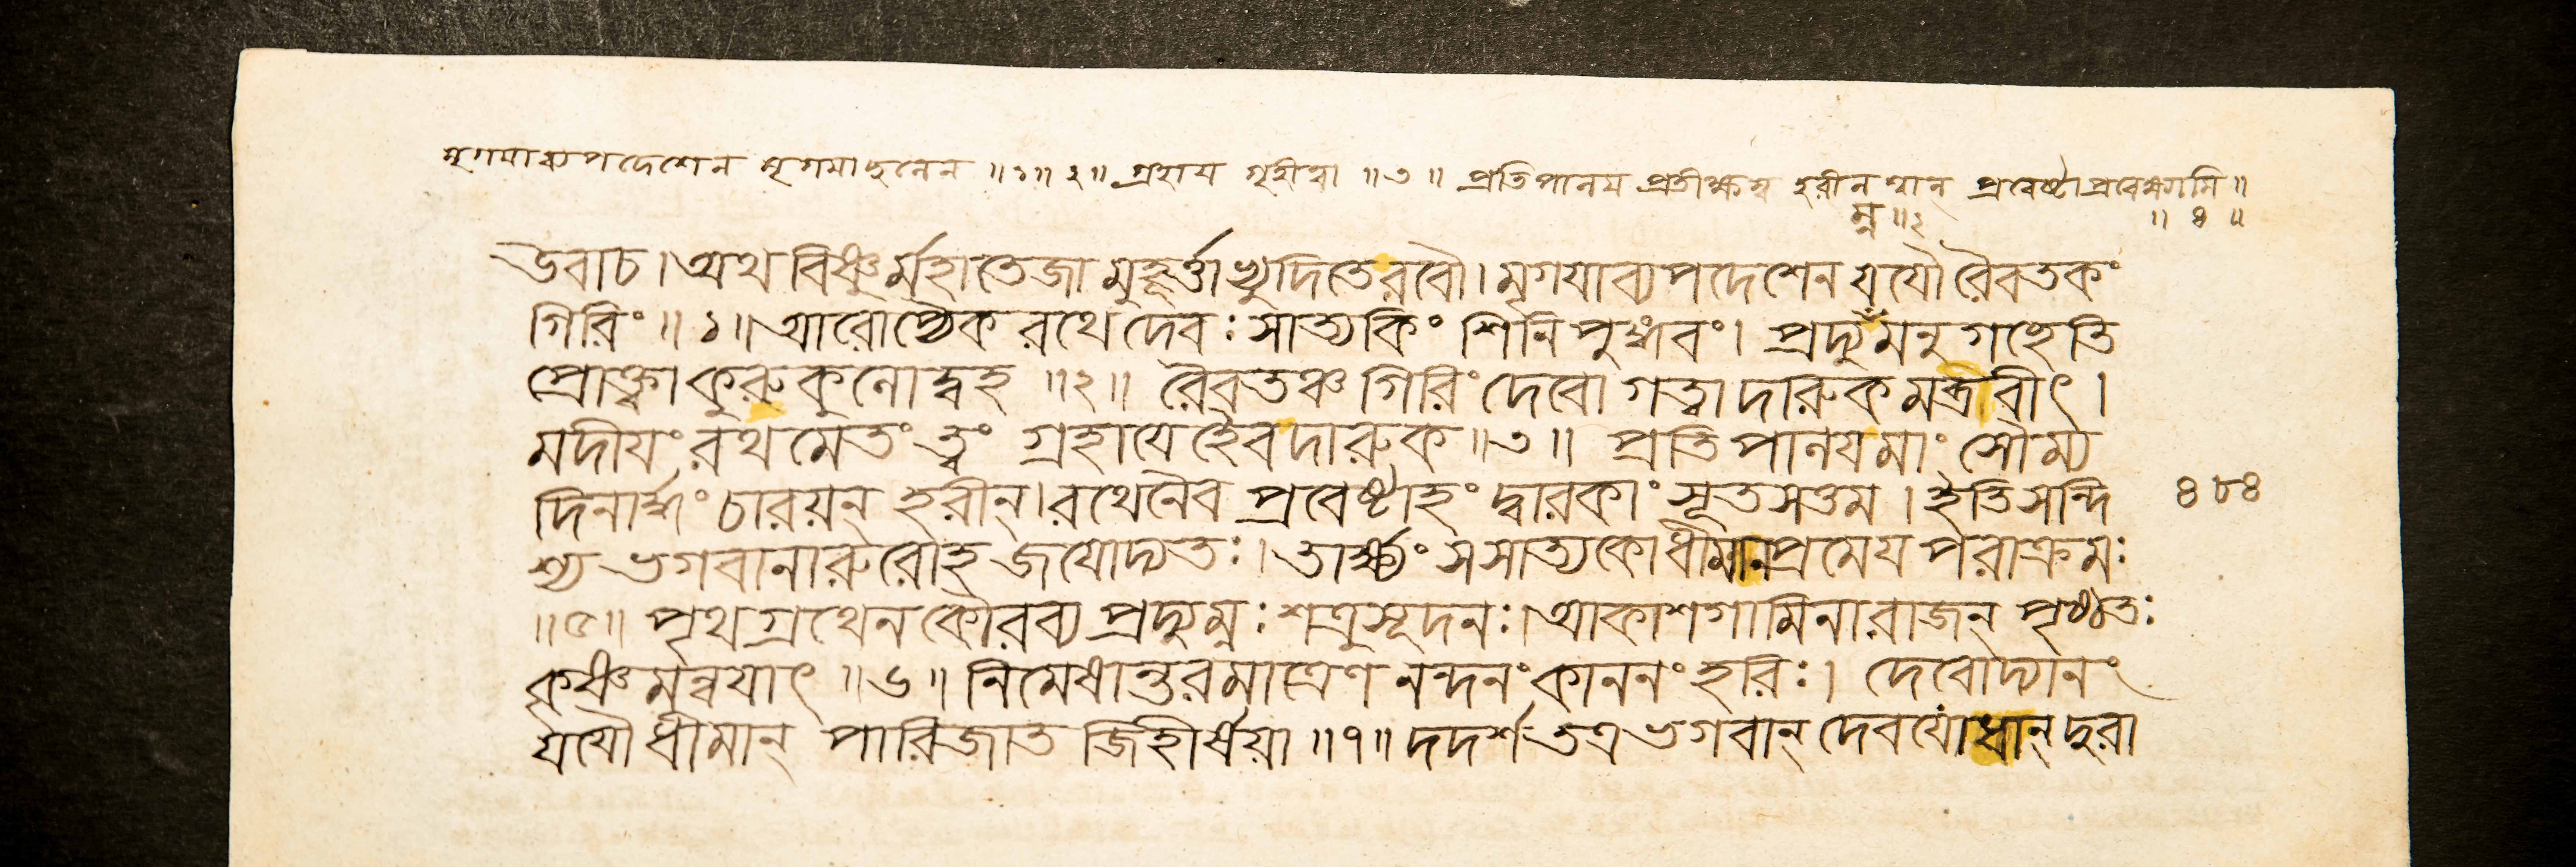 মৃগয়াব্যপদেশেন মৃগয়াছলেন ॥১॥২॥ গ্রহায় গৃহীত্বা ॥৩॥ প্রতিপালয় প্রতীক্ষস্ব হরীন্ প্রবেষ্টা প্রবেক্ষ্যামি॥
ম্ন॥২ ॥৪॥
উবাচ।অথ বিষ্ণুর্মহাতেজা মুহূর্ত্তাভ্যুদিতে রবৌ।মৃগযাব্যপদেশেন যযৌ রৈবতকং
গিরিং॥১॥আরোপ্যৈক রথে দেবঃ সাত্যকিং শিনি পুঙ্গবং। প্রদ্যুম্নমনু গচ্ছেতি
প্রোক্ত্বা কুরুকুলোদ্বহ ॥২॥ রৈবতঞ্চ গিরিং দেবো গত্বা দারুকমব্রবীৎ।
মদীযং রথমেতং ত্বং গ্রহাযেহৈব দারুক॥৩॥ প্রতিপালয মাং সৌম্য
দিনার্দ্ধং চারয়ন্ হরীন্।রথেনৈব প্রবেষ্টাহং দ্বারকাং সূতসত্তম।ইতি সন্দি
শ্য ভগবানারুরোহ জযোদ্যতঃ।তার্ক্ষ্যং সসাত্যকো ধীমানপ্রমেয পরাক্রমঃ
॥৫॥ পৃথগ্রথেন কৌরব্য প্রদ্যুম্নঃ শত্রুসূদনঃ।আকাশগামিনা রাজন্ পৃষ্ঠতঃ
কৃষ্ণমন্বযাৎ ॥৬॥ নিমেষান্তরমাত্রেণ নন্দনং কাননং হরিঃ। দেবোদ্যানং
যযৌ ধীমান্ পারিজাত জিহীর্ষয়া ॥৭॥ দদর্শ তত্র ভগবান্ দেবযোধান্ দুরা
৪৮৪